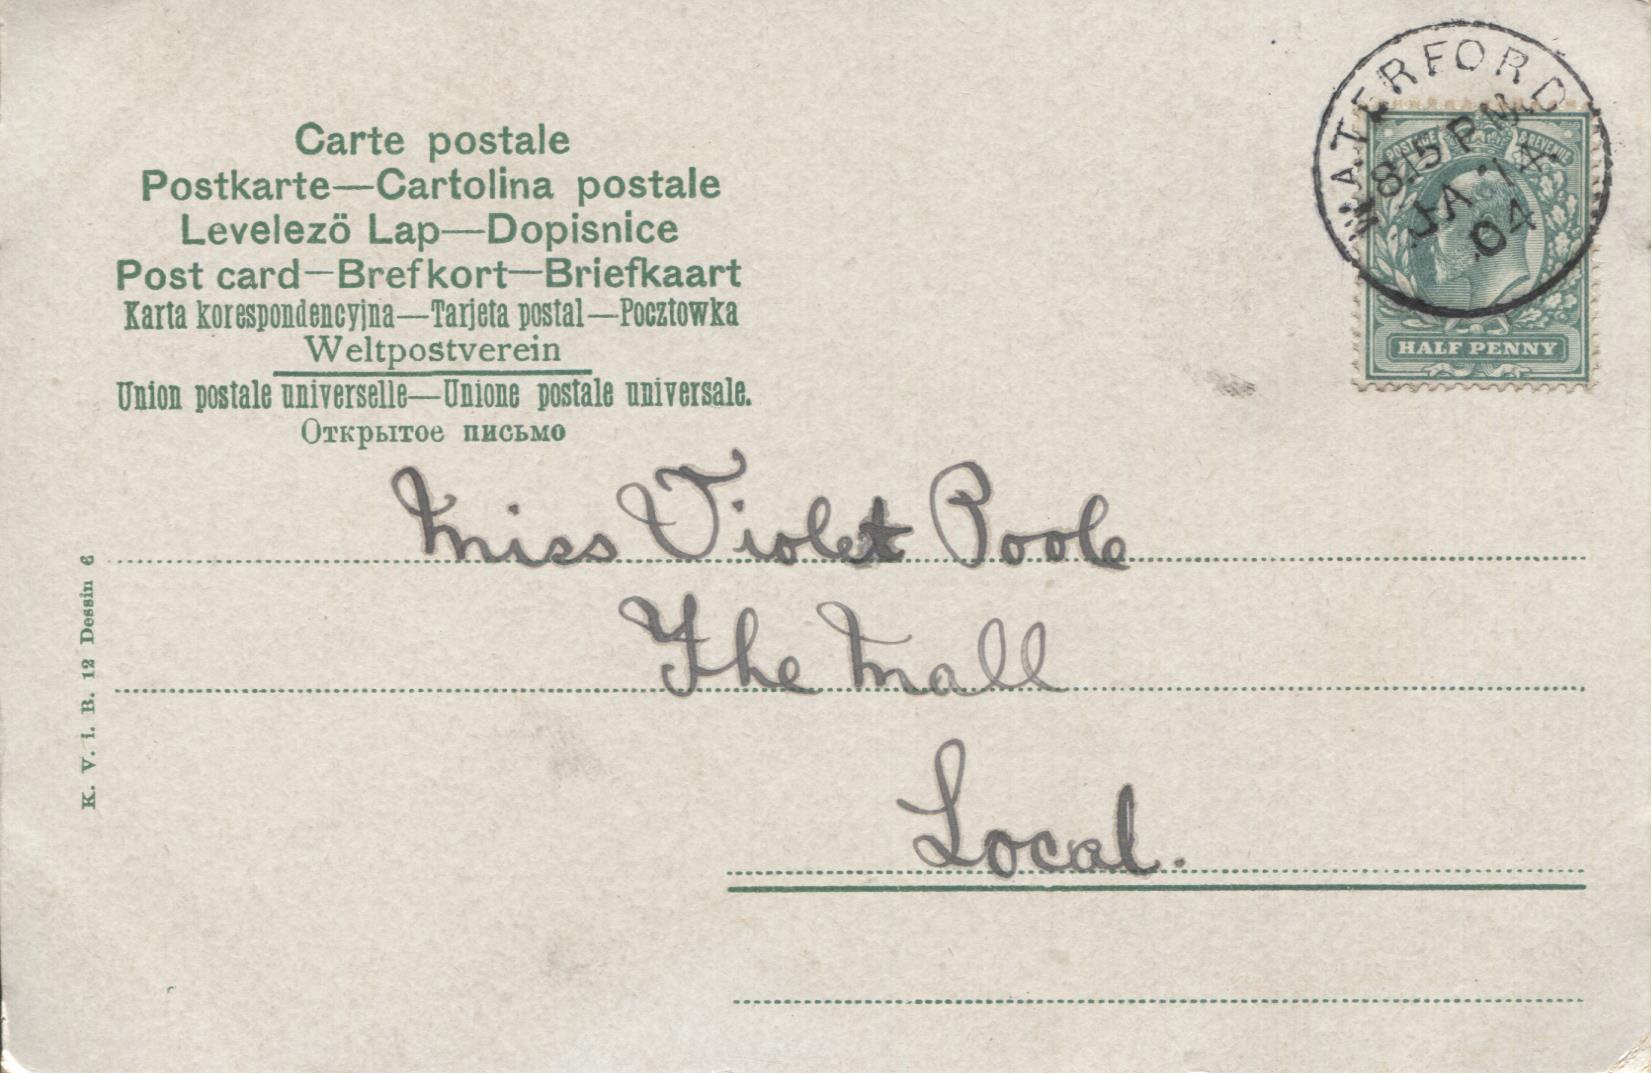 Carte postale
Postkarte—Cartolina postale
Levelező Lap—Dopisnice
Post card—Brefkort—Briefkaart
Karta korespondencyjna—Tarjeta postal—Pocztowka
Weltpostverein
Union postale universelle—Unione postale universale.
Открытое письмо
WATERFORD
8.15 P.M.
JA 1
04
POSTAGE & REVENUE
HALF PENNY
Miss Violet Poole
The Mall
Local.
K. V. i. B. 12 Dessin 6